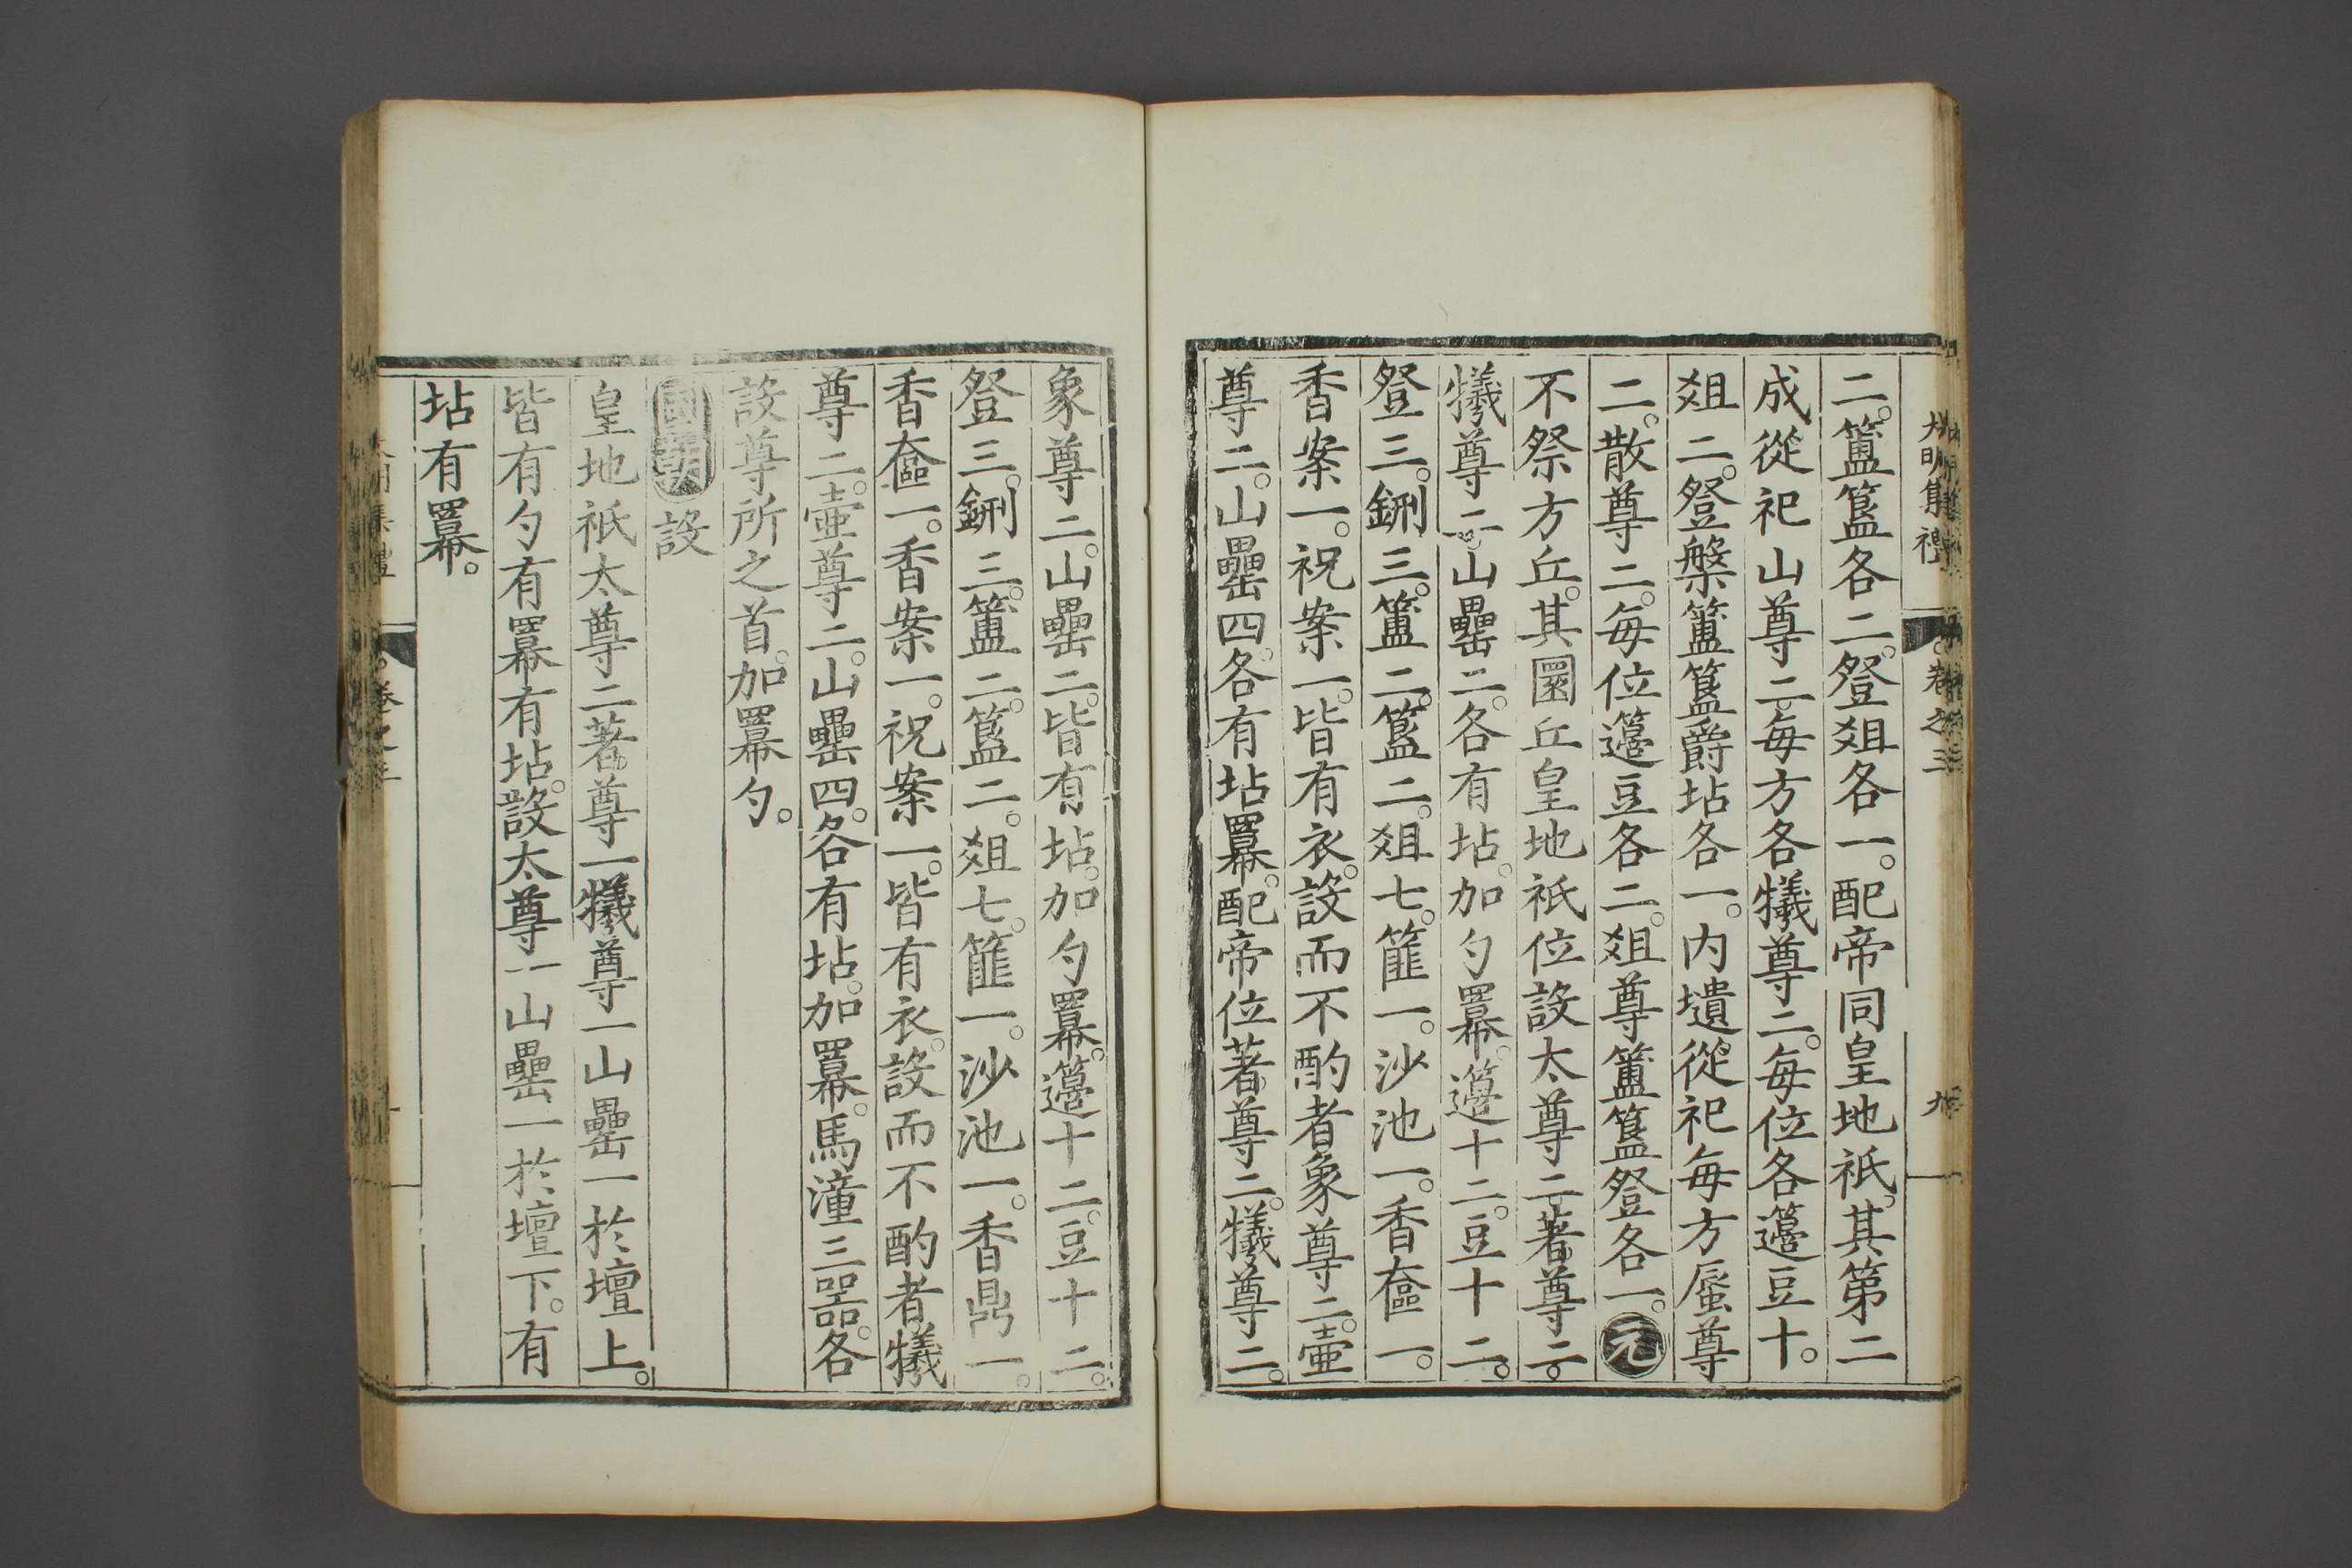 大明集禮
卷之三
九
二。簠簋各二。登俎各一。配帝同皇地祇。其第二
成從祀山尊二。每方各犧尊二。每位各籩豆十。
俎二。登槃簠簋爵坫各一。内壝從祀每方蜃尊
二。散尊二。每位籩豆各二。俎尊簠簋登各一。元
不祭方丘。其圜丘皇地祇位設太尊二。著尊二。
犧尊二。山罍二。各有坫。加勺羃。籩十二。豆十二。
登三。鉶三。簠二。簋二。俎七。篚一。沙池一。香奩一。
香案一。祝案一。皆有衣。設而不酌者象尊二。壷
尊二。山罍四。各有坫羃。配帝位著尊二。犧尊二。
象尊二。山罍二。皆有坫。加勺羃。籩十二。豆十二。
登三。鉶三。簠二。簋二。俎七。篚一。沙池一。香鼎一。
香奩一。香案一。祝案一。皆有衣。設而不酌者。犧
尊二。壷尊二。山罍四。各有坫。加羃。馬潼三器。各
設尊所之首。加羃勺。
國朝設
皇地祇太尊二著尊一犧尊一山罍一於壇上。
皆有勺有羃有坫。設太尊一山罍一於壇下。有
坫有羃。
卷之三